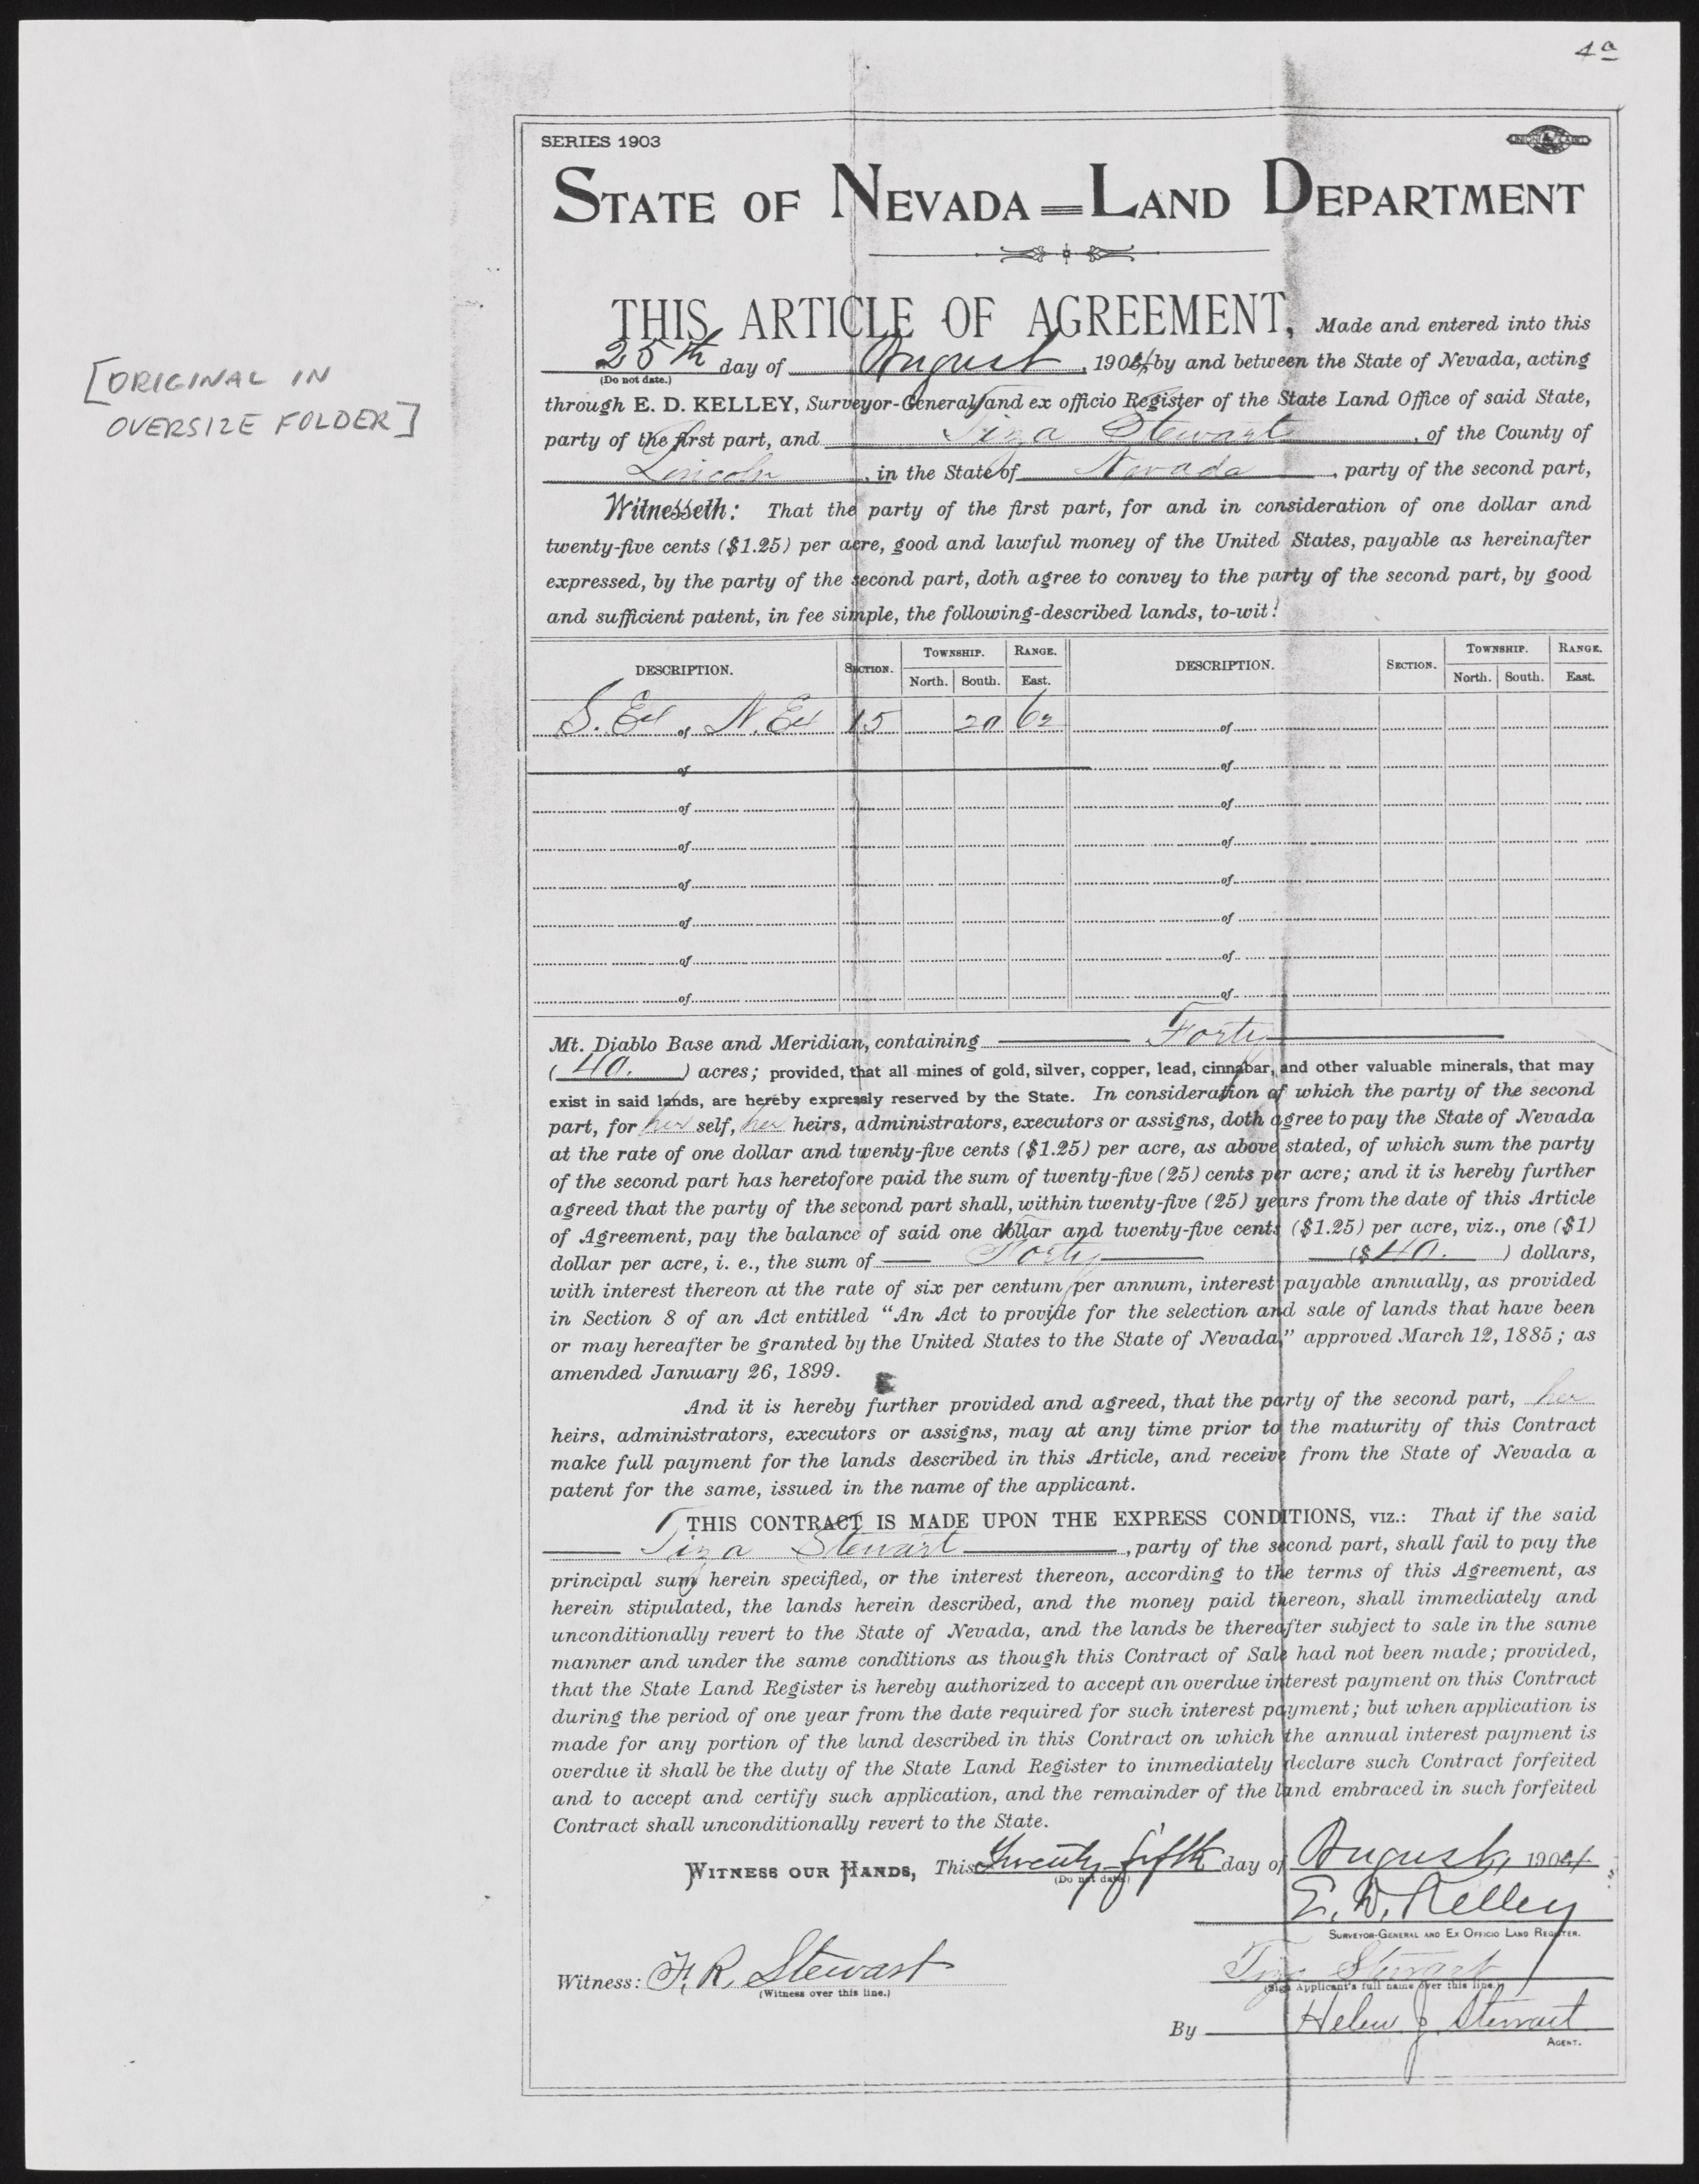 4a
SERIES 1903
STATE OF NEVADA=LAND DEPARTMENT
THIS ARTICLE OF AGREEMENT, Made and entered into this
25th day of August, 1904, by and between the State of Nevada, acting
(Do not date.)
through E. D. KELLEY, Surveyor-General and ex officio Register of the State Land Office of said State,
party of the first part, and Tiza Stewart, of the County of
Lincoln, in the State of Nevada, party of the second part,
[ORIGINAL IN
OVERSIZE FOLDER]
Witnesseth: That the party of the first part, for and in consideration of one dollar and
twenty-five cents ($1.25) per acre, good and lawful money of the United States, payable as hereinafter
expressed, by the party of the second part, doth agree to convey to the party of the second part, by good
and sufficient patent, in fee simple, the following-described lands, to-wit:
DESCRIPTION. SECTION. TOWNSHIP. RANGE. DESCRIPTION. SECTION. TOWNSHIP. RANGE.
North. South. East. North. South. East.
S.E4 of N.E4 15 20 62 of
of of
of of
of of
of of
of of
of of
of of
Mt. Diablo Base and Meridian, containing Forty
(40.) acres; provided, that all mines of gold, silver, copper, lead, cinnabar, and other valuable minerals, that may
exist in said lands, are hereby expressly reserved by the State. In consideration of which the party of the second
part, for her self, her heirs, administrators, executors or assigns, doth agree to pay the State of Nevada
at the rate of one dollar and twenty-five cents ($1.25) per acre, as above stated, of which sum the party
of the second part has heretofore paid the sum of twenty-five (25) cents per acre; and it is hereby further
agreed that the party of the second part shall, within twenty-five (25) years from the date of this Article
of Agreement, pay the balance of said one dollar and twenty-five cents ($1.25) per acre, viz., one ($1)
dollar per acre, i. e., the sum of Forty ($40.) dollars,
with interest thereon at the rate of six per centum per annum, interest payable annually, as provided
in Section 8 of an Act entitled “An Act to provide for the selection and sale of lands that have been
or may hereafter be granted by the United States to the State of Nevada,” approved March 12, 1885; as
amended January 26, 1899.
And it is hereby further provided and agreed, that the party of the second part, her
heirs, administrators, executors or assigns, may at any time prior to the maturity of this Contract
make full payment for the lands described in this Article, and receive from the State of Nevada a
patent for the same, issued in the name of the applicant.
THIS CONTRACT IS MADE UPON THE EXPRESS CONDITIONS, VIZ.: That if the said
Tiza Stewart, party of the second part, shall fail to pay the
principal sum herein specified, or the interest thereon, according to the terms of this Agreement, as
herein stipulated, the lands herein described, and the money paid thereon, shall immediately and
unconditionally revert to the State of Nevada, and the lands be thereafter subject to sale in the same
manner and under the same conditions as though this Contract of Sale had not been made; provided,
that the State Land Register is hereby authorized to accept an overdue interest payment on this Contract
during the period of one year from the date required for such interest payment; but when application is
made for any portion of the land described in this Contract on which the annual interest payment is
overdue it shall be the duty of the State Land Register to immediately declare such Contract forfeited
and to accept and certify such application, and the remainder of the land embraced in such forfeited
Contract shall unconditionally revert to the State.
WITNESS OUR HANDS, This Twenty fifth day of August, 1904
(Do not date.)
E. D. Kelley
SURVEYOR-GENERAL AND EX OFFICIO LAND REGISTER.
Witness: F. R. Stewart Tiza Stewart
(Witness over this line.) (Sign Applicant's full name over this line.)
By Helen J. Stewart
AGENT.